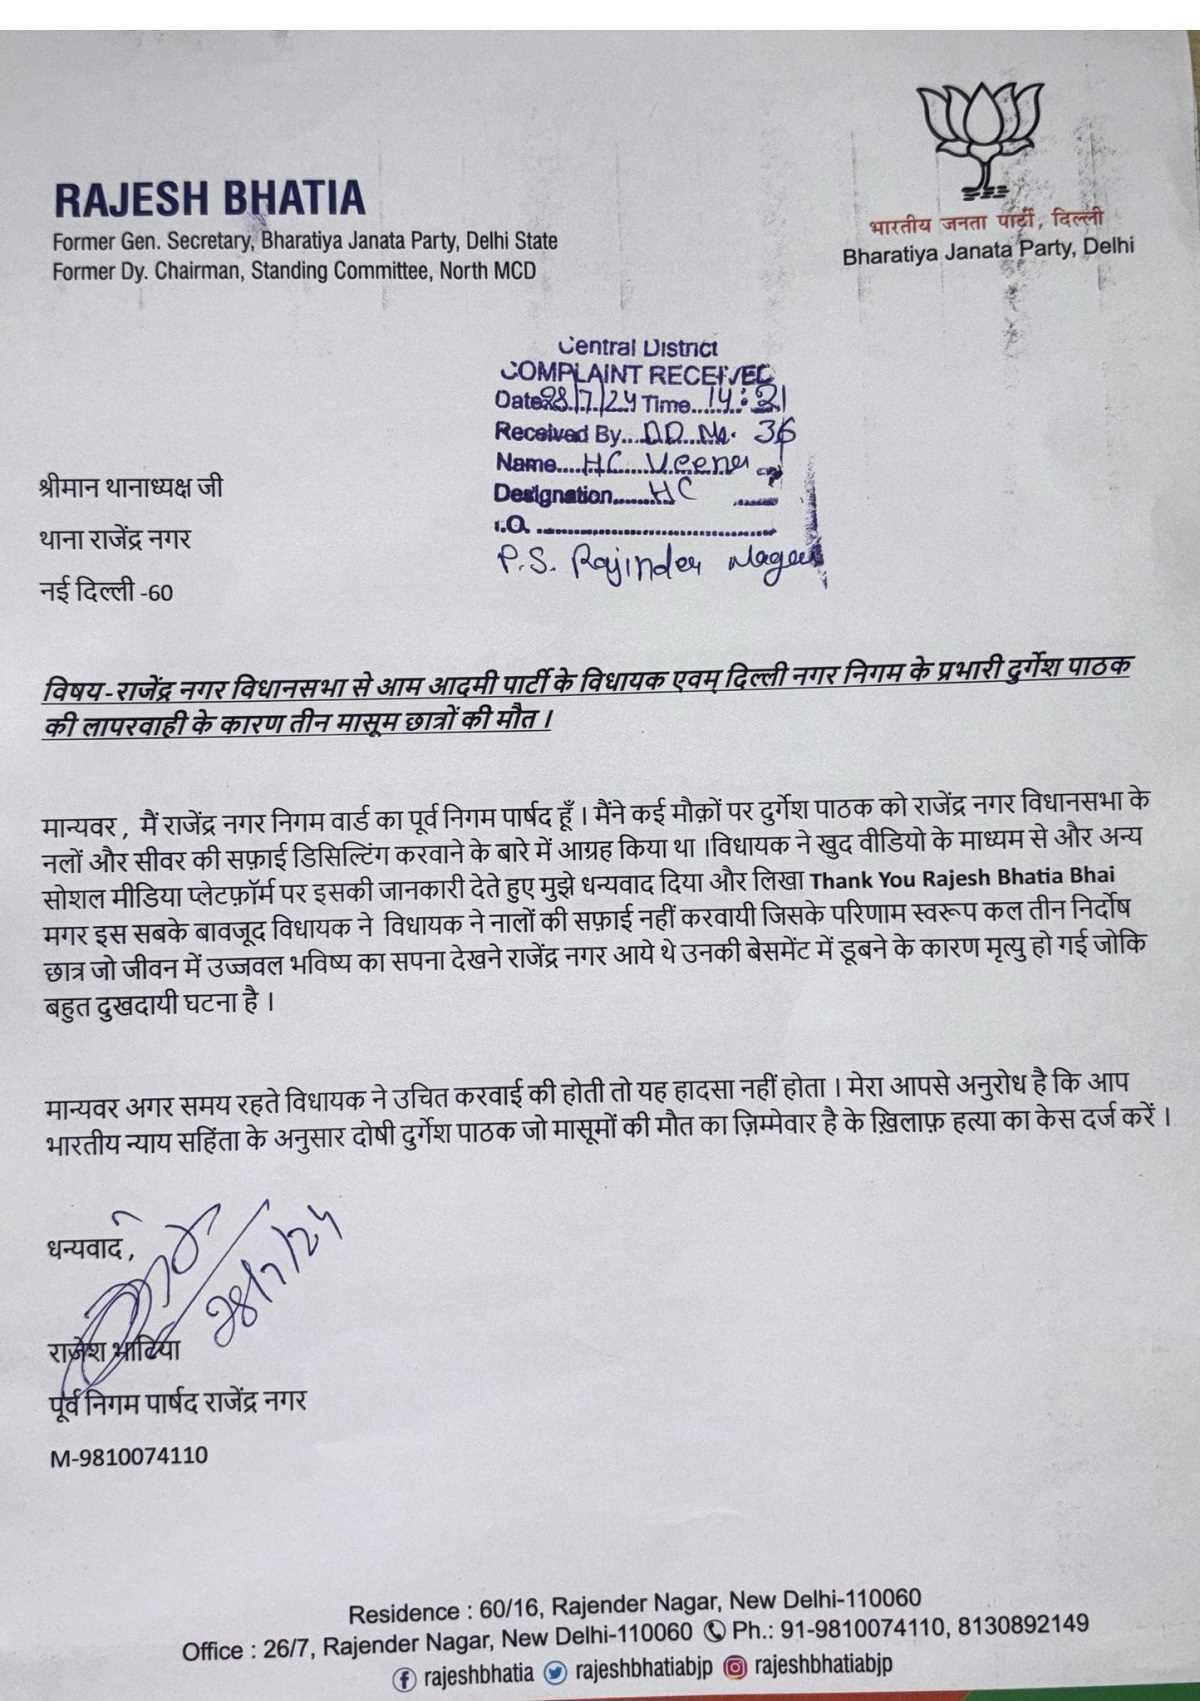 RAJESH BHATIA
Former Gen. Secretary, Bharatiya Janata Party, Delhi State
Former Dy. Chairman, Standing Committee, North MCD
भारतीय जनता पार्टी, दिल्ली
Bharatiya Janata Party, Delhi
Central District
COMPLAINT RECEIVED
Date 28/7/24 Time 14:21
Received By DD No. 36
Name HC Veena
Designation HC
I.O.
P.S. Rajinder Nagar
श्रीमान थानाध्यक्ष जी
थाना राजेंद्र नगर
नई दिल्ली -60
विषय-राजेंद्र नगर विधानसभा से आम आदमी पार्टी के विधायक एवम् दिल्ली नगर निगम के प्रभारी दुर्गेश पाठक
की लापरवाही के कारण तीन मासूम छात्रों की मौत ।
मान्यवर , मैं राजेंद्र नगर निगम वार्ड का पूर्व निगम पार्षद हूँ । मैंने कई मौक़ों पर दुर्गेश पाठक को राजेंद्र नगर विधानसभा के
नलों और सीवर की सफ़ाई डिसिल्टिंग करवाने के बारे में आग्रह किया था ।विधायक ने खुद वीडियो के माध्यम से और अन्य
सोशल मीडिया प्लेटफ़ॉर्म पर इसकी जानकारी देते हुए मुझे धन्यवाद दिया और लिखा Thank You Rajesh Bhatia Bhai
मगर इस सबके बावजूद विधायक ने विधायक ने नालों की सफ़ाई नहीं करवायी जिसके परिणाम स्वरूप कल तीन निर्दोष
छात्र जो जीवन में उज्जवल भविष्य का सपना देखने राजेंद्र नगर आये थे उनकी बेसमेंट में डूबने के कारण मृत्यु हो गई जोकि
बहुत दुखदायी घटना है ।
मान्यवर अगर समय रहते विधायक ने उचित करवाई की होती तो यह हादसा नहीं होता । मेरा आपसे अनुरोध है कि आप
भारतीय न्याय सहिंता के अनुसार दोषी दुर्गेश पाठक जो मासूमों की मौत का ज़िम्मेवार है के ख़िलाफ़ हत्या का केस दर्ज करें ।
धन्यवाद ,
28/7/24
राजेश भाटिया
पूर्व निगम पार्षद राजेंद्र नगर
M-9810074110
Residence : 60/16, Rajender Nagar, New Delhi-110060
Office : 26/7, Rajender Nagar, New Delhi-110060 Ph.: 91-9810074110, 8130892149
rajeshbhatia rajeshbhatiabjp rajeshbhatiabjp